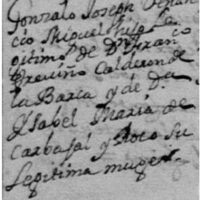 Gonzalo Joseph Ignan
cio Miguel hijo le
gitimo de Dn Franco
Treviño Calderon de
la Barca y de Da
Ysabel Maria de
Carbajal y Roco su
legitima muger